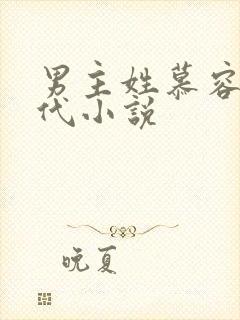 男主姓慕容
代小說
晚夏